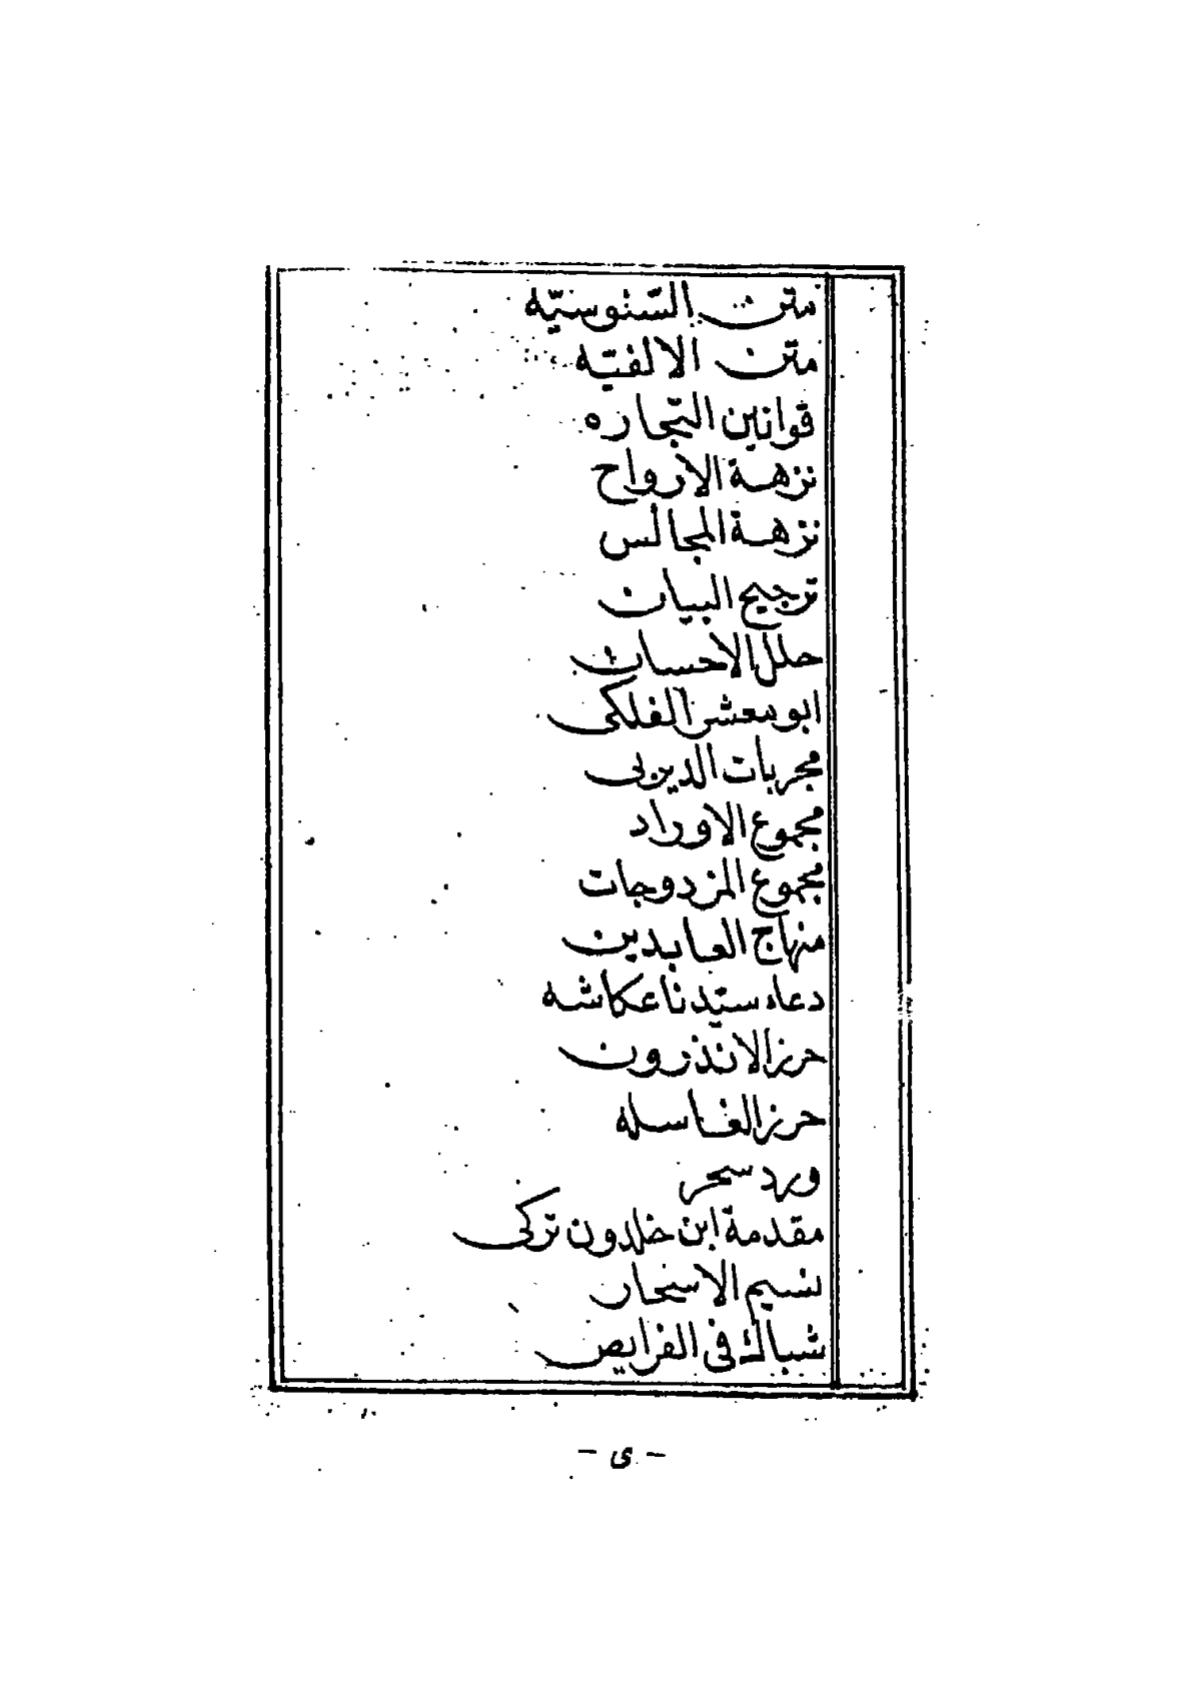 متن السّنوسيّه
متن الالفيّه
قوانين التّجاره
نزهة الارواح
نزهة المجالس
ترجيح البيان
حلل الاحسان
ابو معشر الفلكى
مجربات الديربى
مجموع الاوراد
مجموع المزدوجات
منهاج العابدين
دعاء سيّدنا عكاشه
حرز الاندرون
حرز الغاسله
ورد سحر
مقدمة ابن خلدون تركى
نسيم الاسحار
شباك فى الفرايض
- ى -